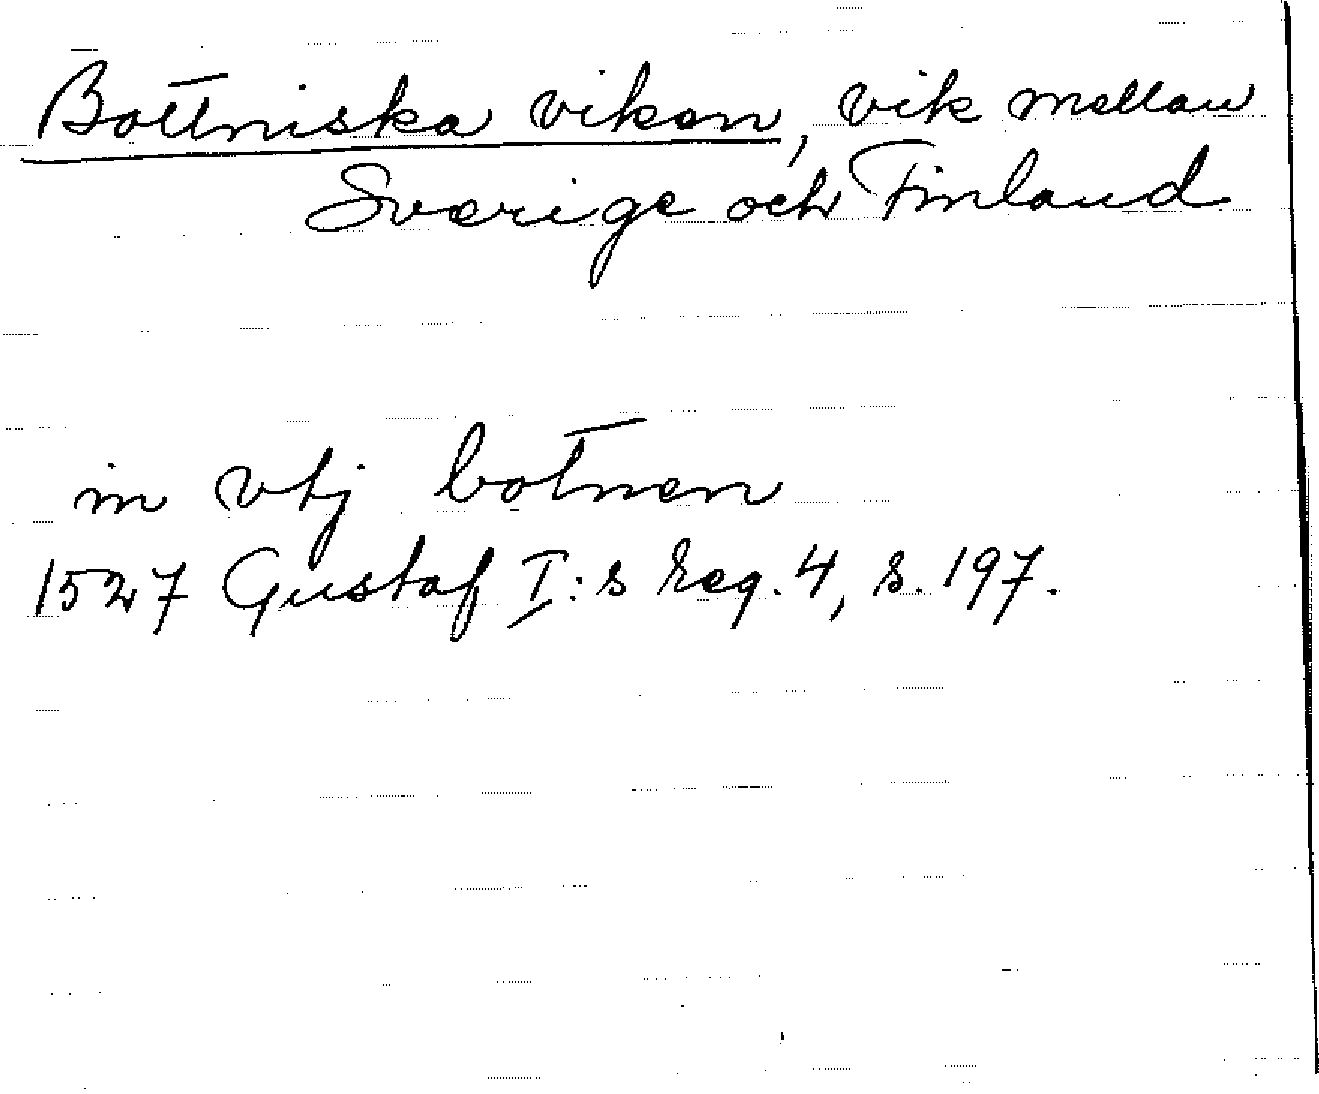 Bottniska viken, vik mellan
Sverige och Finland
in vtj botnen
1527 Gustaf I:s reg. 4, s. 197.